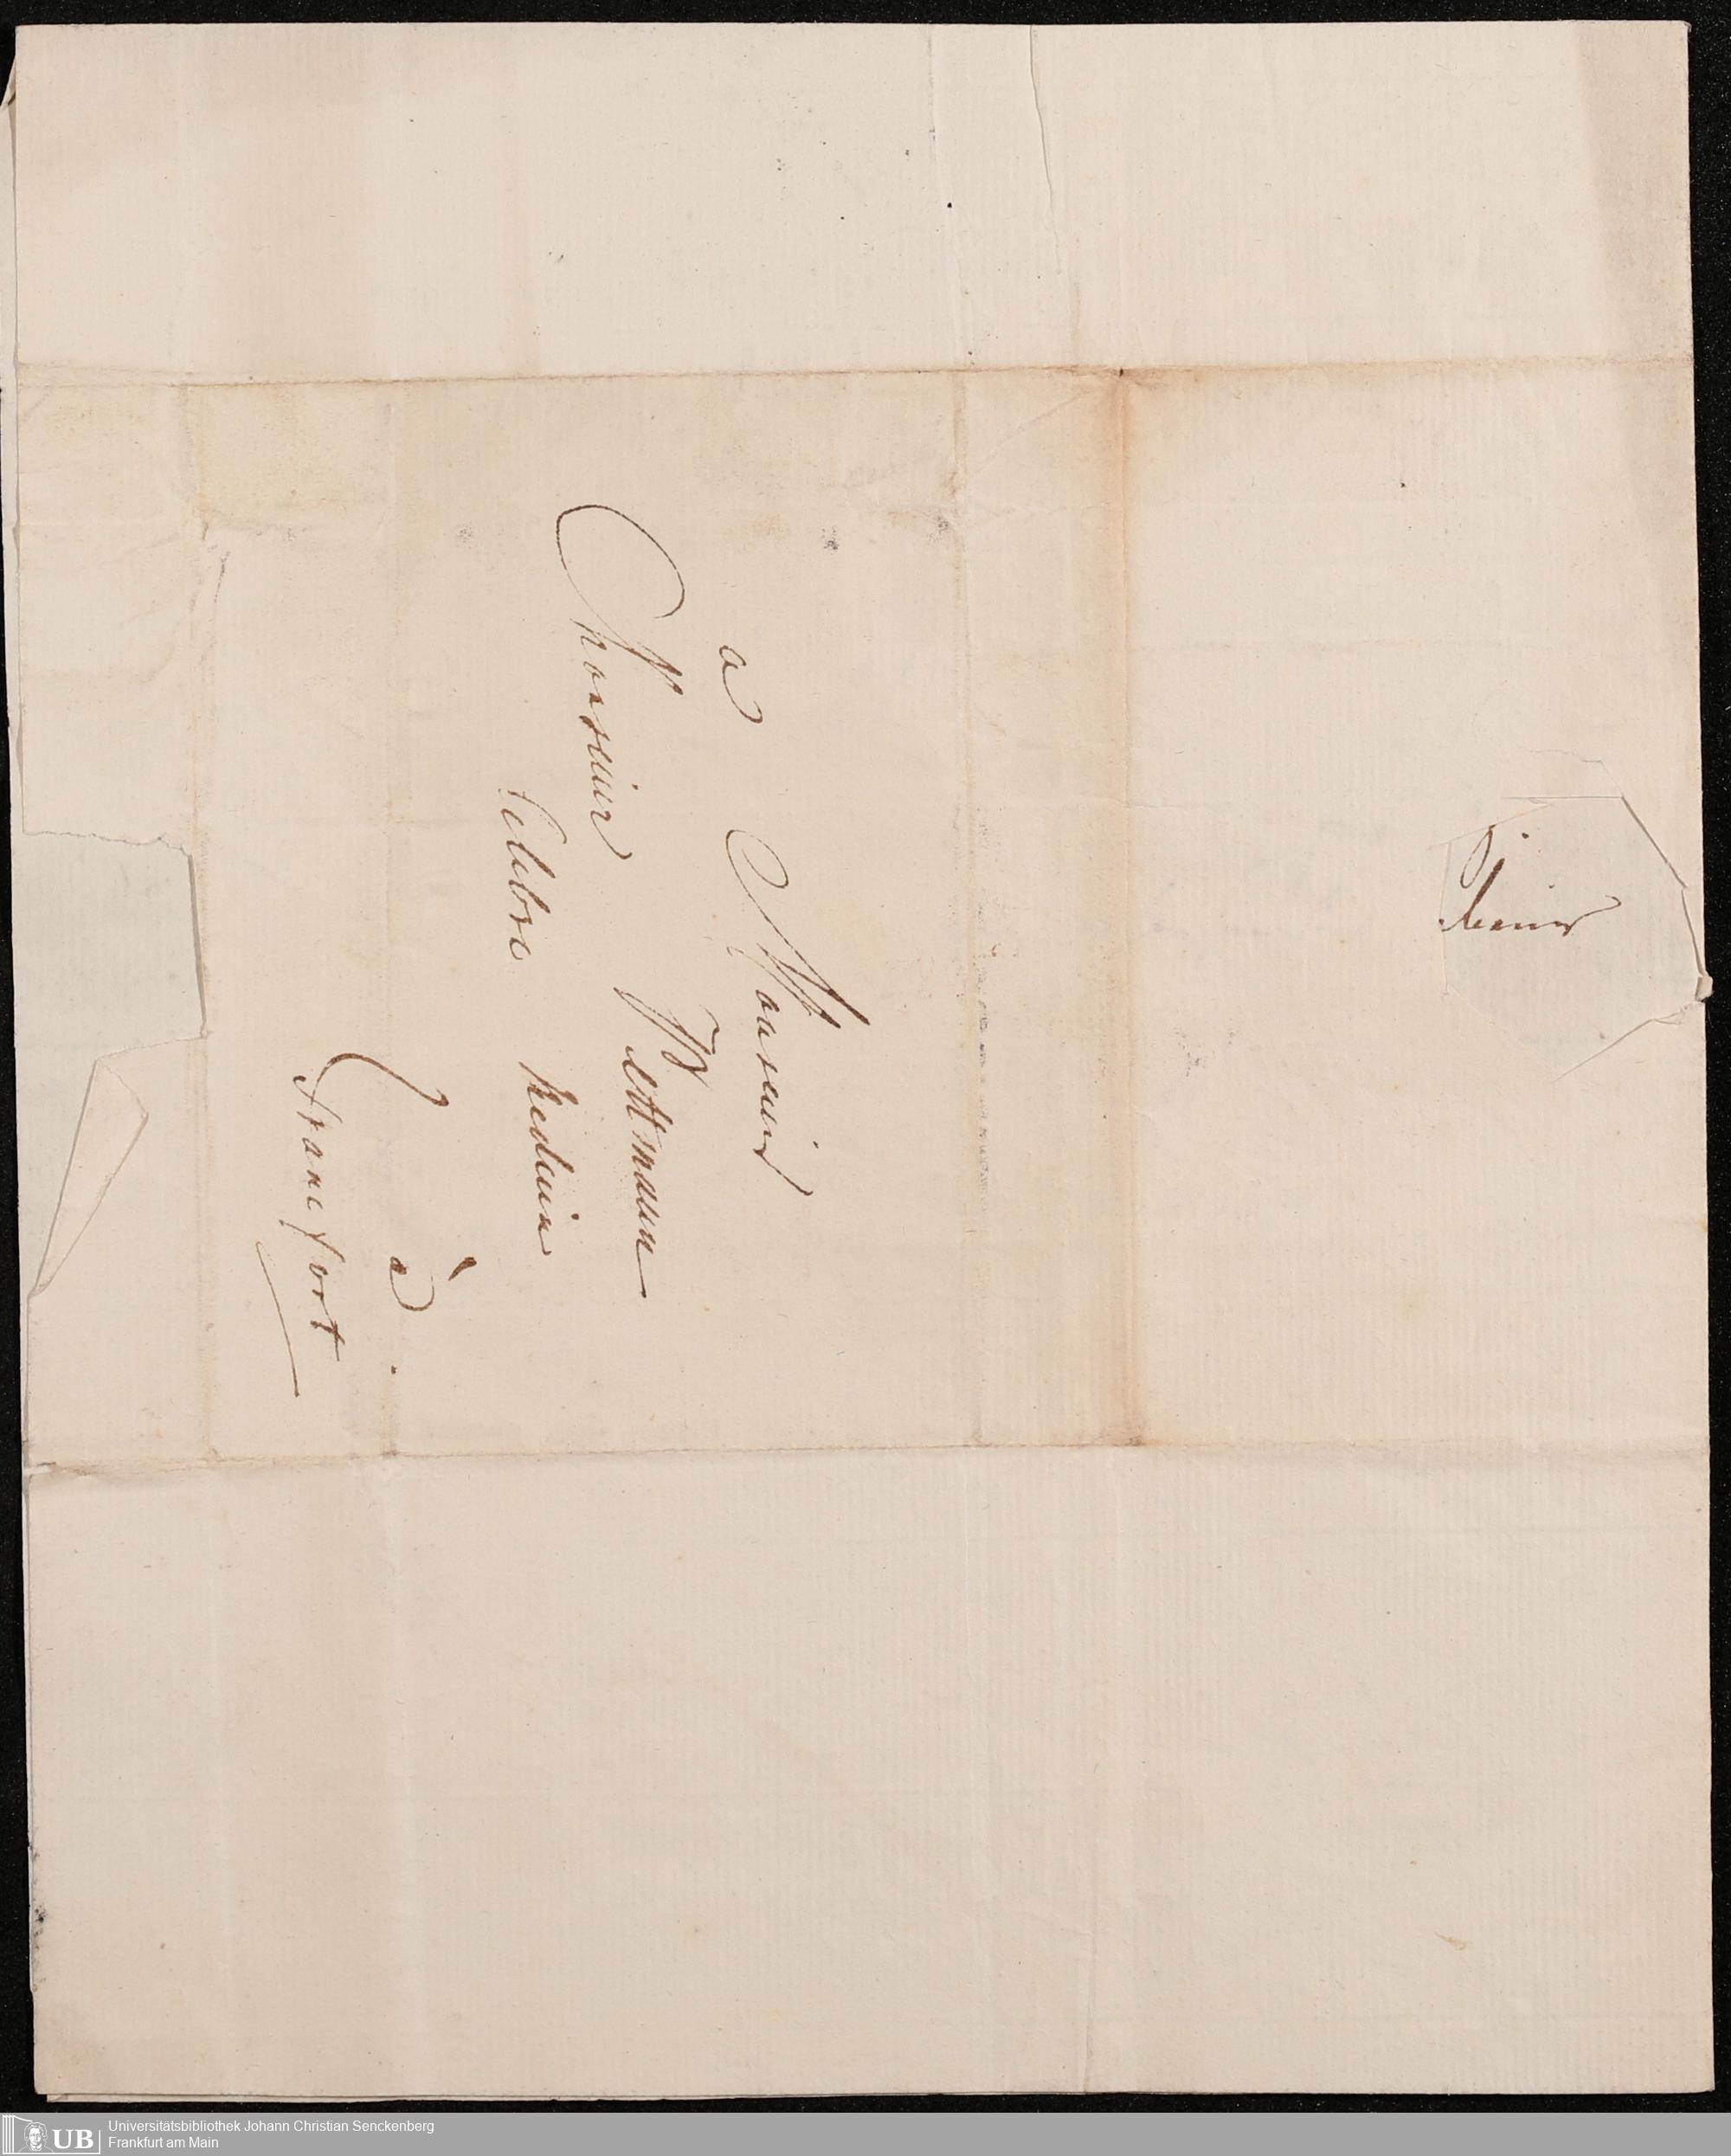 a Monsieur
Monsieur Wettmann
Celebre Medecin
à
Francfort
Universitätsbibliothek Johann Christian Senckenberg
Frankfurt am Main
UB